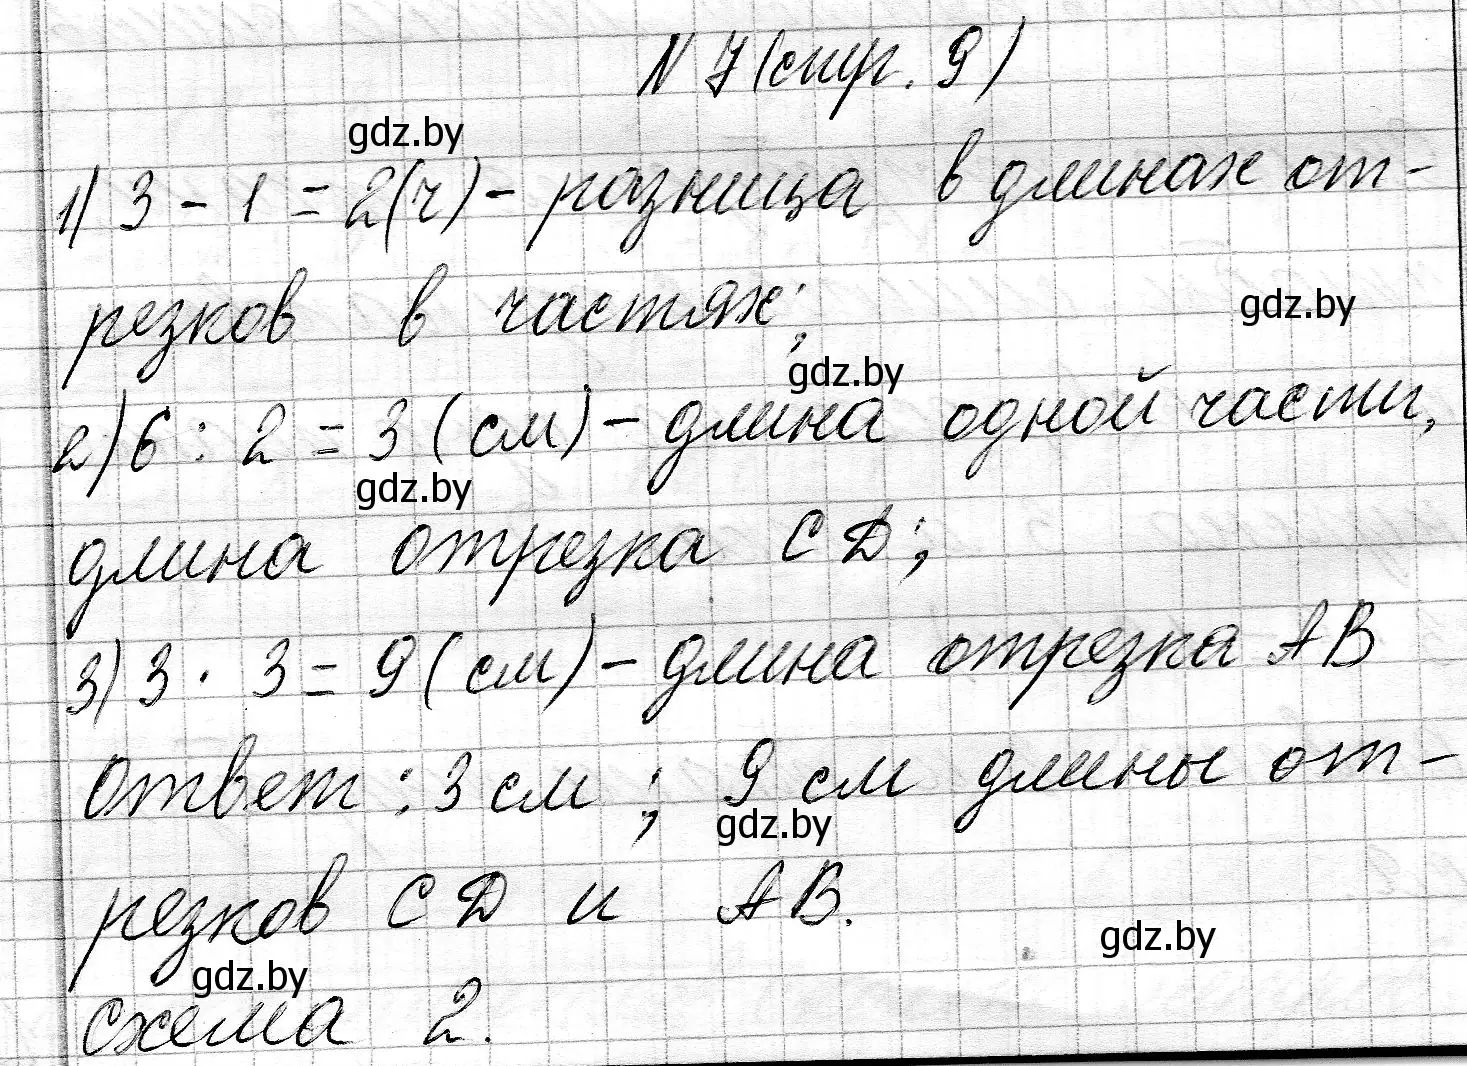 N 7 (стр. 9)
gdz.by
1) 3 - 1 = 2(ч) - разница в длинах от-
резков в частях;
gdz.by
gdz.by
2) 6 : 2 = 3 (см) - длина одной части,
gdz.by
длина отрезка CD;
3) 3 · 3 = 9 (см) - длина отрезка AB
Ответ : 3 см ; 9 см длины от-
gdz.by
резков CD и AB.
gdz.by
gdz.by
схема 2.